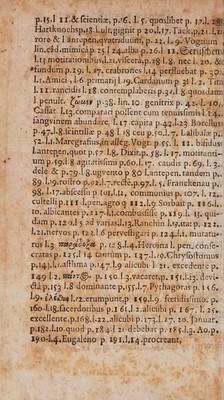 p.15.l 11.&scientiæ, p.16.l. 5. quoslibet p. 17.l.28
Hartknochs,p.18.l.ult.gignit p.20.l.17.Tack,p.21.l.21
rore & l. antepen. quatriduum, p. 22. l. 9. Voguium
lin. ead. mimicâ p. 25 l 24. alba p. 26. l. 11.
l.15 motitationibus.l.21.viscera,p.28 l.8. nec l.20 &
fundum p.29. l. 17. crabrones l. 34 perfluebat p. 30.
l. 1. Amici, l. 6 primam l. 9. Cardanum p. 31 l. 2.
l. 11. rancidis l. 18. contemplaberis p. 32 l. 8 quosdam
l. penult. ζώειν p. 38. lin. 10. genitrix p. 42. l. 10
Cassat l. 13. comparari possent cum tenuissimis l. 14.
sanguinem abundare l. 17 capita p.42.l.23 Borellum
p 47.l.8.scintillæ p 48. l 18 ceu p.50.l.7. Lalibala p.
52 l.1. Maregrasius, in alleg. Vogt. p. 55. l. 12. bifidus
Lantepen, quot p.57 l.8. Durius, p.58 l. 17. motitanti-
um p. 59 l. 8 agitatissim p.60. l. 17. caudis p. 69. l. 3.
dele & p.79 l.8. ugvento p 80 Lantepen. tandem p.
89 l.9.rostro p.92.l.7.recte, p.97.l 5. Franckenau p.
98. l 17.abscessu p 104.l.12. communius p. 107. l. 12.
cultellis p 111. l.pen. agro q 112.l 9 Sorbait p 116. l.
10. albicantes p 117.l.3. combussisse. p 119. l 15. qui-
dam, p 120. l 9 ad varias, l.13. Ranchin l.19. stat p. 122.
l.21.nervos p. 123.l.16 pervestigari p. 124.l.1. mutatu-
rus l.3. παρωδύνια p 125 l.4. Heroina l. pen. conse-
cratas p. 125. l 14 cantum p. 147.l.19. Chrysostomus
p.145.l.1. asthma p 147.l 2 alicubi l 21. excedente p.
149 l.2. p. 150.l 3. vacaret, p 151.l 13. devi-
ctâ p. 153 l 8 dominante p.55.l.7. Pythagoras p. 156.
l.9. l.12. erumpunt, p 159.l.9. fœtidissimo. p.
160 l.18. sacerdotibus p 161.l.2. alicubi p 167. l 25.
excellente, p.168.l.22. alicubi p 173.l 17. 20. Januar.
p.182.l.10 quod p.184 l 21. debebat p. 185.l 3. Ao. p.
190 l.4. Eugaleno p 191.l 14. procreant.